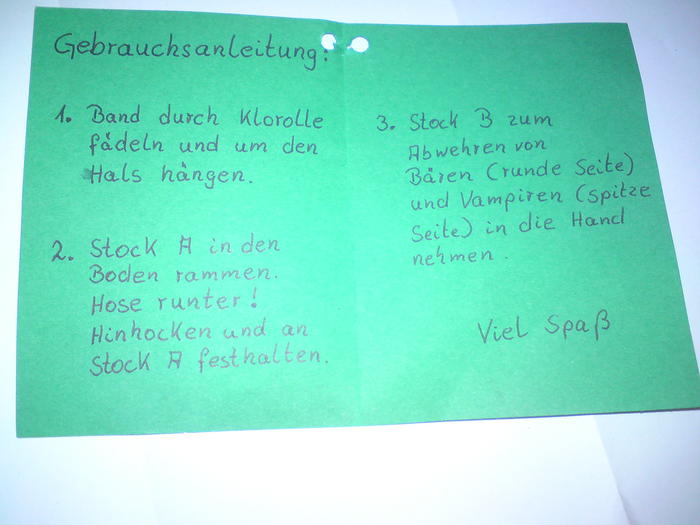 Gebrauchsanleitung:
1. Band durch Klorolle
fädeln und um den
Hals hängen.
2. Stock A in den
Boden rammen.
Hose runter!
Hinhocken und an
Stock A festhalten.
3. Stock B zum
Abwehren von
Bären (runde Seite)
und Vampiren (spitze
Seite) in die Hand
nehmen.
Viel Spaß